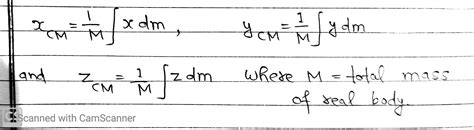 x_CM = 1/M ∫ x dm , y_CM = 1/M ∫ y dm
and z_CM = 1/M ∫ z dm where M = total mass
of real body.
Scanned with CamScanner